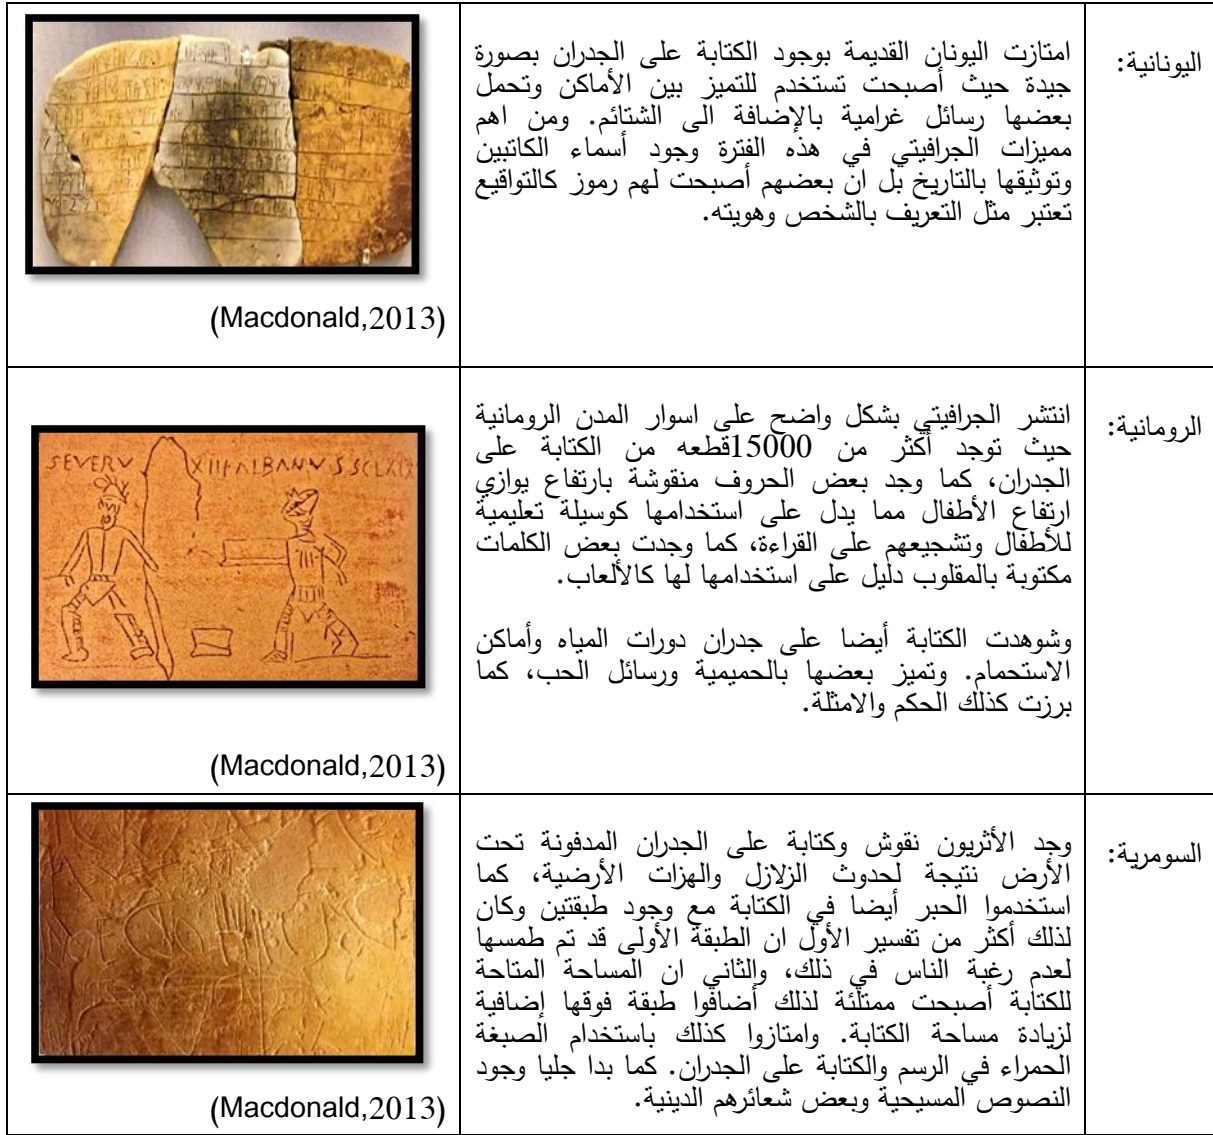 اليونانية:
امتازت اليونان القديمة بوجود الكتابة على الجدران بصورة
جيدة حيث أصبحت تستخدم للتميز بين الأماكن وتحمل
بعضها رسائل غرامية بالإضافة الى الشتائم. ومن اهم
مميزات الجرافيتي في هذه الفترة وجود أسماء الكاتبين
وتوثيقها بالتاريخ بل ان بعضهم أصبحت لهم رموز كالتواقيع
تعتبر مثل التعريف بالشخص وهويته.
(Macdonald,2013)
الرومانية:
انتشر الجرافيتي بشكل واضح على اسوار المدن الرومانية
حيث توجد أكثر من 15000قطعه من الكتابة على
الجدران، كما وجد بعض الحروف منقوشة بارتفاع يوازي
ارتفاع الأطفال مما يدل على استخدامها كوسيلة تعليمية
للأطفال وتشجيعهم على القراءة، كما وجدت بعض الكلمات
مكتوبة بالمقلوب دليل على استخدامها لها كالألعاب.
وشوهدت الكتابة أيضا على جدران دورات المياه وأماكن
الاستحمام. وتميز بعضها بالحميمية ورسائل الحب، كما
برزت كذلك الحكم والامثلة.
SEVERV XIII ALBANVS SCLXIX
(Macdonald,2013)
السومرية:
وجد الأثريون نقوش وكتابة على الجدران المدفونة تحت
الأرض نتيجة لحدوث الزلازل والهزات الأرضية، كما
استخدموا الحبر أيضا في الكتابة مع وجود طبقتين وكان
لذلك أكثر من تفسير الأول ان الطبقة الأولى قد تم طمسها
لعدم رغبة الناس في ذلك، والثاني ان المساحة المتاحة
للكتابة أصبحت ممتلئة لذلك أضافوا طبقة فوقها إضافية
لزيادة مساحة الكتابة. وامتازوا كذلك باستخدام الصبغة
الحمراء في الرسم والكتابة على الجدران. كما بدا جليا وجود
النصوص المسيحية وبعض شعائرهم الدينية.
(Macdonald,2013)